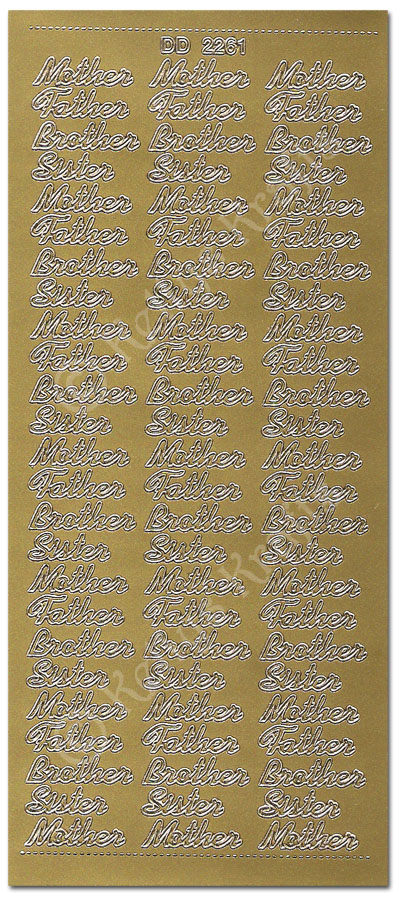 DD 2261
Mother Mother Mother
Father Father Father
Brother Brother Brother
Sister Sister Sister
Mother Mother Mother
Father Father Father
Brother Brother Brother
Sister Sister Sister
Mother Mother Mother
Father Father Father
Brother Brother Brother
Sister Sister Sister
Mother Mother Mother
Father Father Father
Brother Brother Brother
Sister Sister Sister
Mother Mother Mother
Father Father Father
Brother Brother Brother
Sister Sister Sister
Mother Mother Mother
Father Father Father
Brother Brother Brother
Sister Sister Sister
Mother Mother Mother